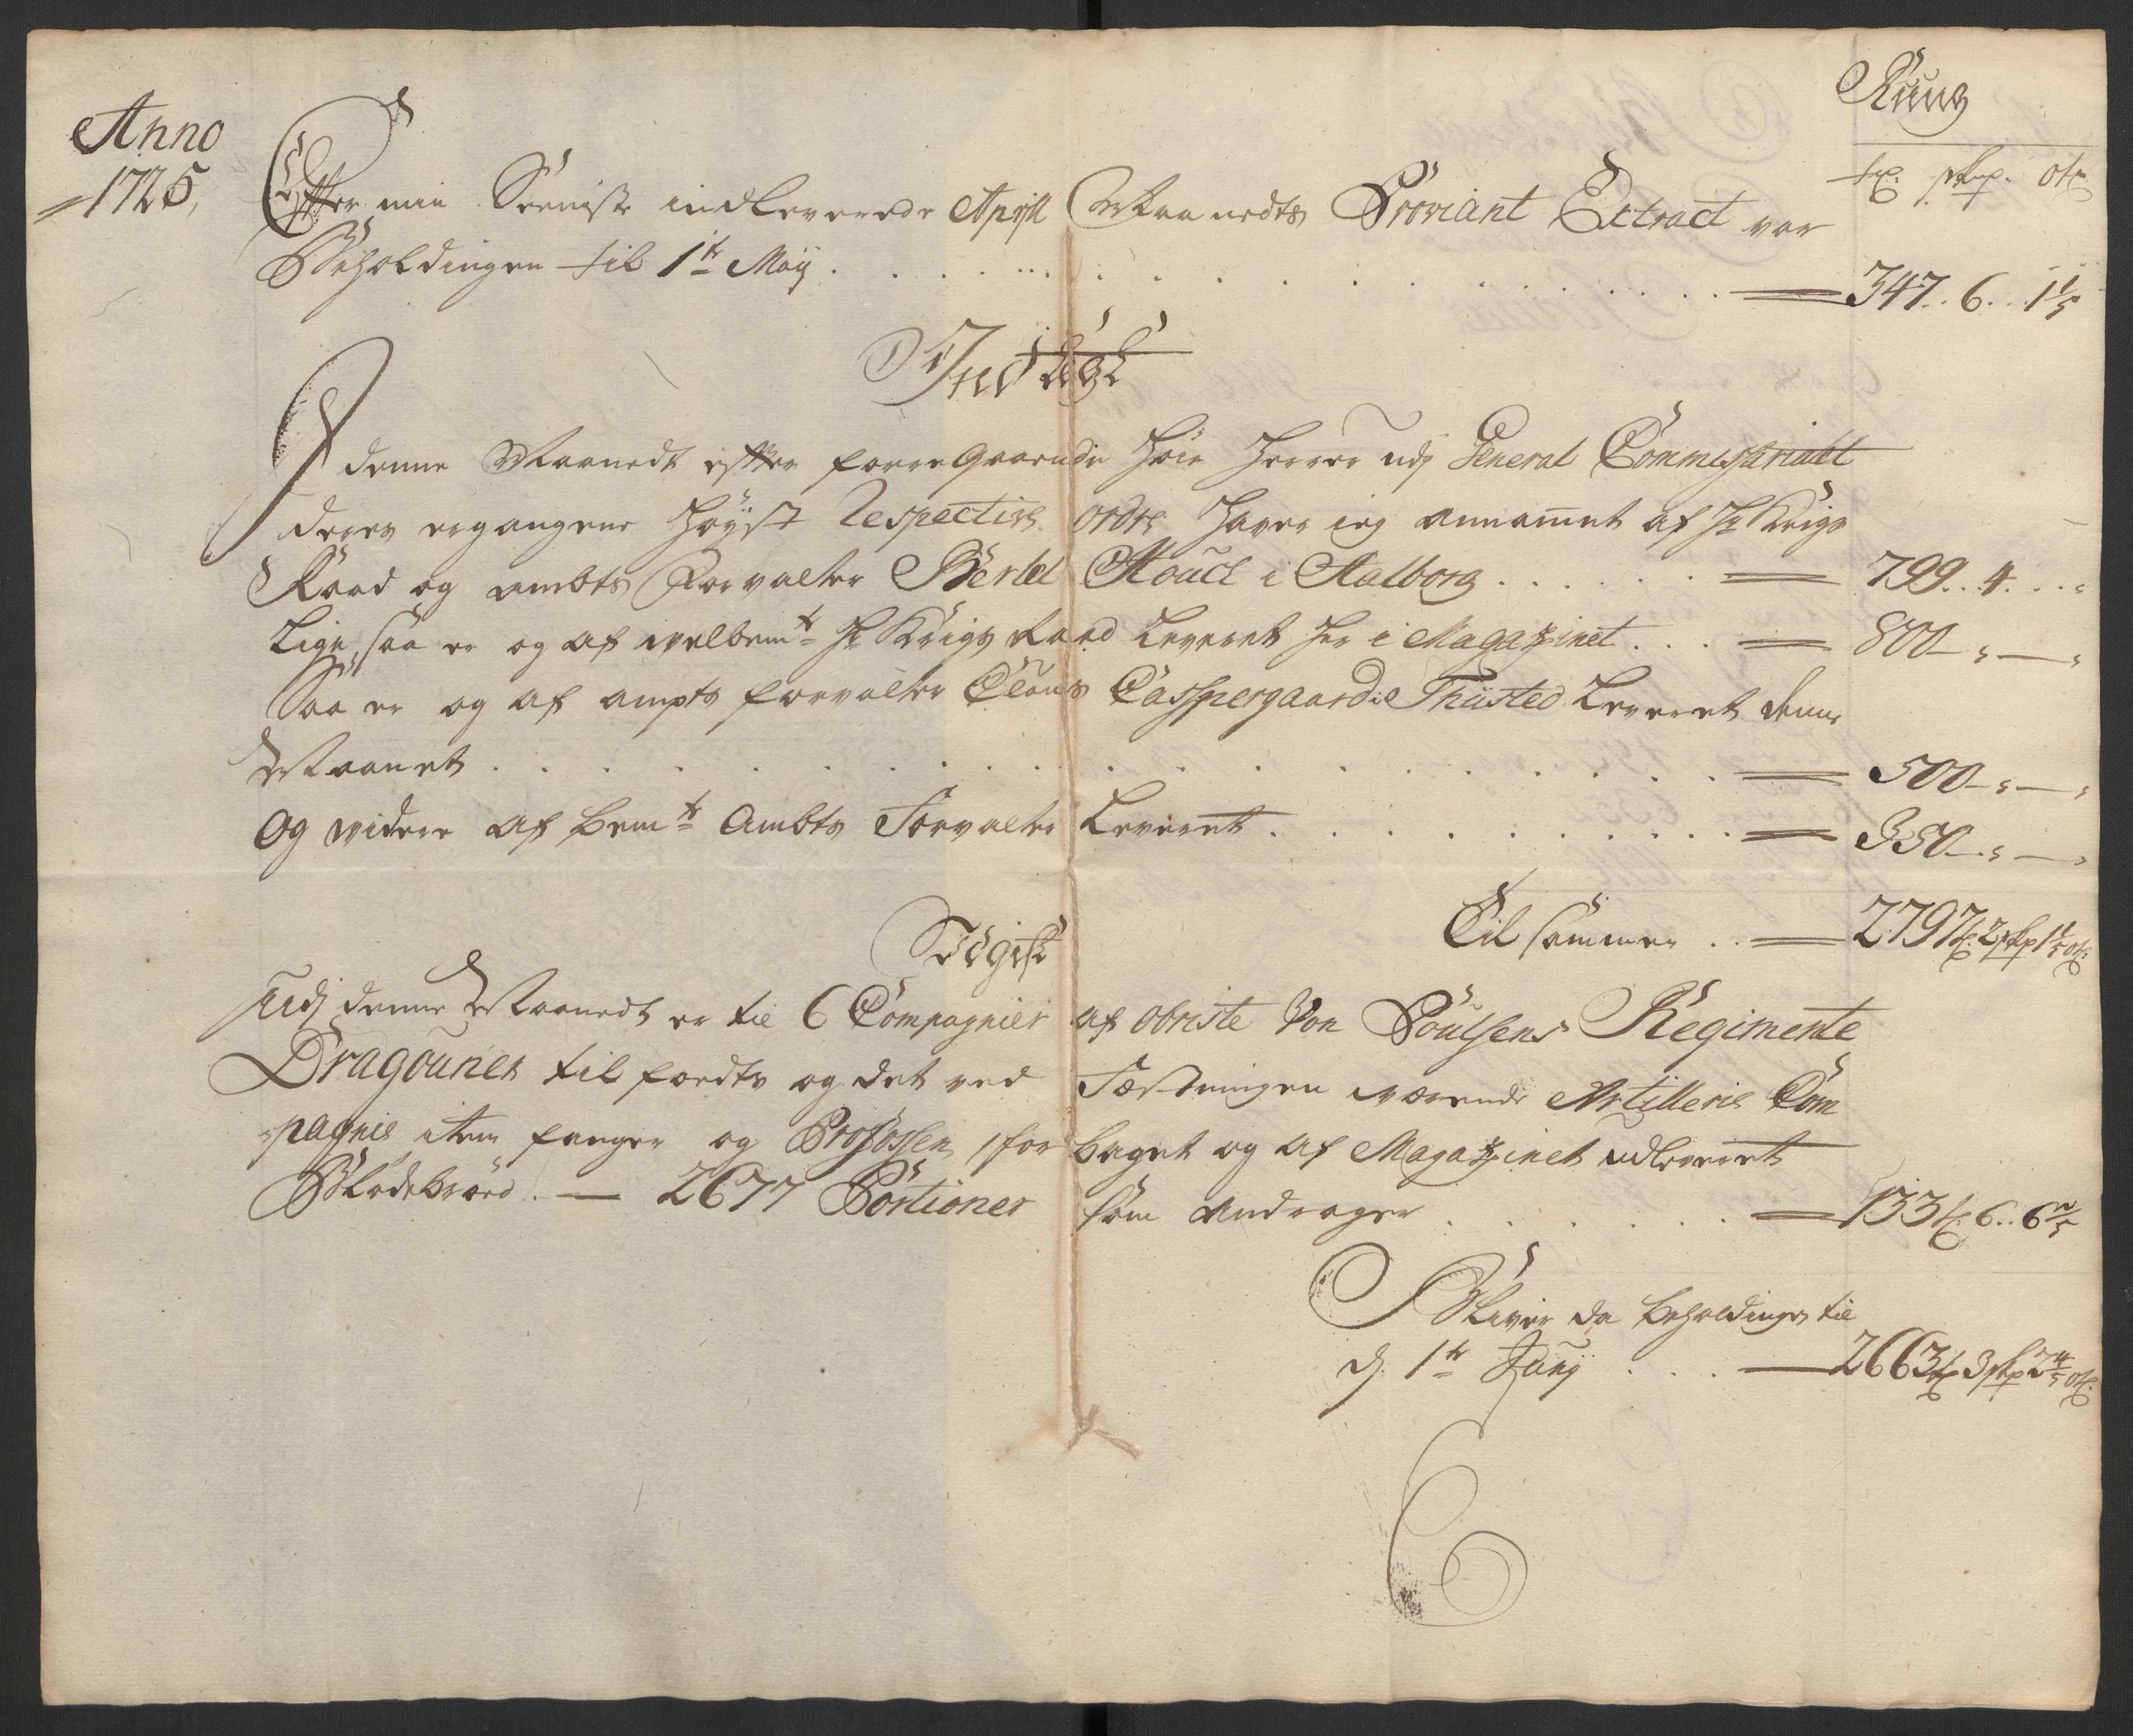 Rüug
Anno
1725,
tr. skp. otr
Effter min Seeniste indleverede Aprill Maanedts Proviant Extract var
Beholdingen til 1te Maij . . . . . = 347 .. 6 .. 1 1/5
Indtegt
I denne Maanedt effter foregaaende Høie Herrer udj General Commissariatet
deres ergangene Høyst Respective ordre Haver ieg annammet af Hr Krigs
Raad og ambts Forvalter Bertel Houck i Aalborg . . . . . = 799 .. 4 .. "
Lige saa er og af welbemte Hr Krigs Raad Leveret her i Magazinet . . . = 800 - " - "
Saa er og af ampts forvalter Claus Caspergaard i Thiisted Leveret denne
Maanet . . . . . = 500 - " - "
Og videre af bemte Ambts Forvalter Leveret . . . . . = 350 - " - "
Til sammen . . = 2797 tr. 2 skp 1 1/5 otr:
Udj denne Maanedt er til 6 Compagnier af obriste Von Poulsens Regimente
Dragouner til fordts og det ved Fæstningen værende Artillerie Com
pagnie, item fanger og Proffossen, forbaget og af Magazinet udleveret
Brødebrød . — 2677 Portioner som andrager . . . . . = 133 tr. 6 .. 6 2/5
Bliver da beholdingen til
dj 1te Junij . . . — 2663 tr 3 skp 2 4/5 otr.